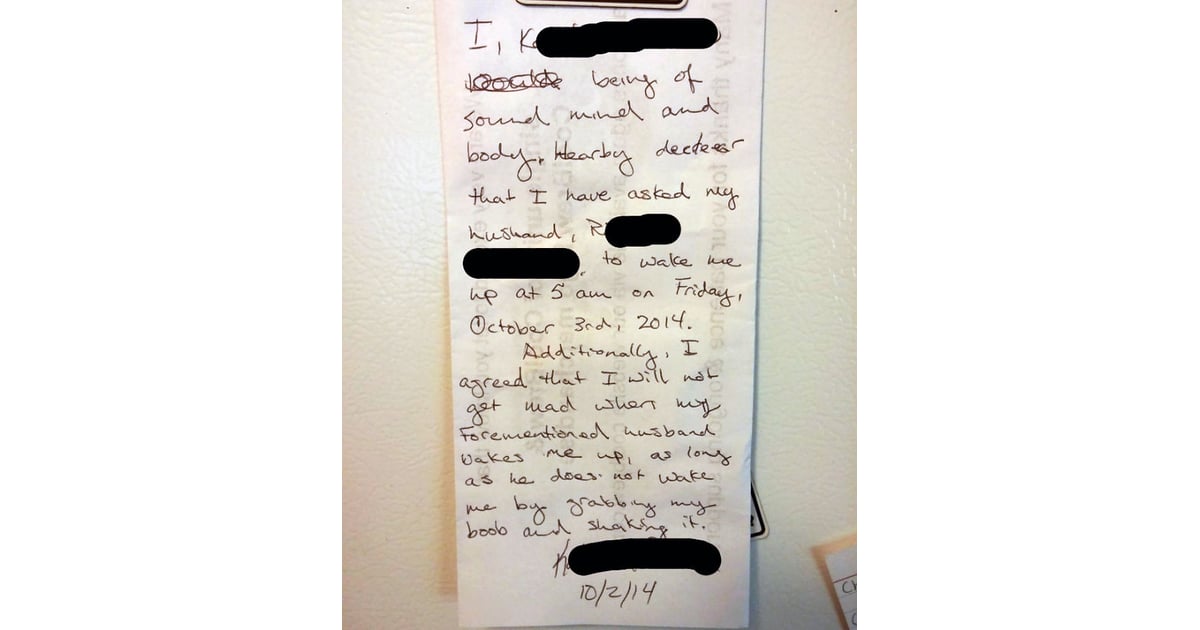 I, K
being of
sound mind and
body, Hearby
that I have asked my
husband, R
to wake me
up at 5 am on Friday,
October 3rd, 2014.
Additionally, I
agreed that I will not
get mad when my
Forementioned husband
wakes me up, as long
as he does not wake
me by grabbing my
boob and shaking it.
K
10/2/14